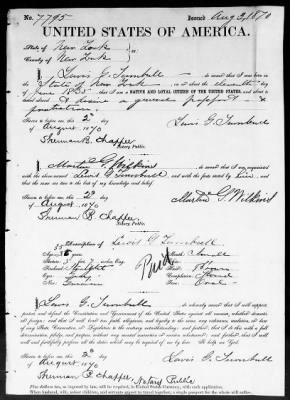 No. 7795 Issued Aug 2, 1870
UNITED STATES OF AMERICA.
State of New York
County of New York
I, Lewis G. Turnbull do swear that I was born in the
State of New York on or about the eleventh
day of June 1835 that I am a NATIVE AND LOYAL CITIZEN OF THE UNITED STATES, and about to
travel abroad & desire a general passport &
protection
Sworn to before me, this 2d
day of August 1870 Lewis G. Turnbull
Sherman B.
Notary Public.
I, Martin G. Wilkins do swear that I am acquainted
with the above named Lewis G. Turnbull and with the facts stated by him and that
the same are true to the best of my knowledge and belief.
Sworn to before me, this 2d
day of August 1870 Martin G. Wilkins
Sherman B.
Notary Public.
Description of Lewis G Turnbull
Age: 35 years Mouth: Small
Stature: 5 feet 7 inches, Eng.
Forehead:
Eyes:
Nose:
Paid
Face: Oval
I, Lewis G. Turnbull do solemnly swear that I will support,
protect, and defend the Constitution and Government of the United States against all enemies, whether domestic
or foreign; and that I will bear true faith, allegiance, and loyalty to the same, any ordinance, resolution, or law
of any State Convention or Legislature to the contrary notwithstanding; and further, that I do this with a full
determination, pledge, and purpose, without any mental reservation or evasion whatsoever; and further, that I will
well and faithfully perform all the duties which may be required of me by law. So help me God.
Sworn to before me, this 2d
day of August 1870 Lewis G. Turnbull
Sherman B.
Notary Public